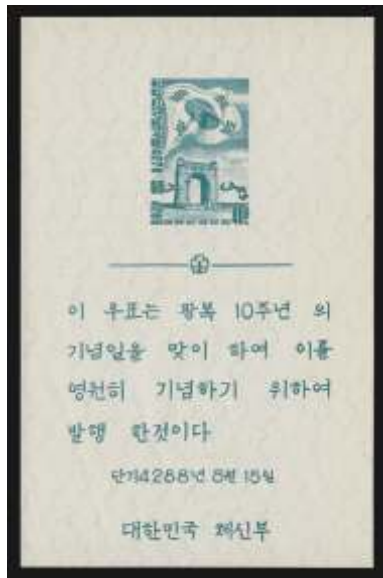 이 우표는 광복 10주년 의
기념일을 맞이 하여 이를
영원히 기념하기 위하여
발행 한것이다
단기4288년 8월 15일
대한민국 체신부